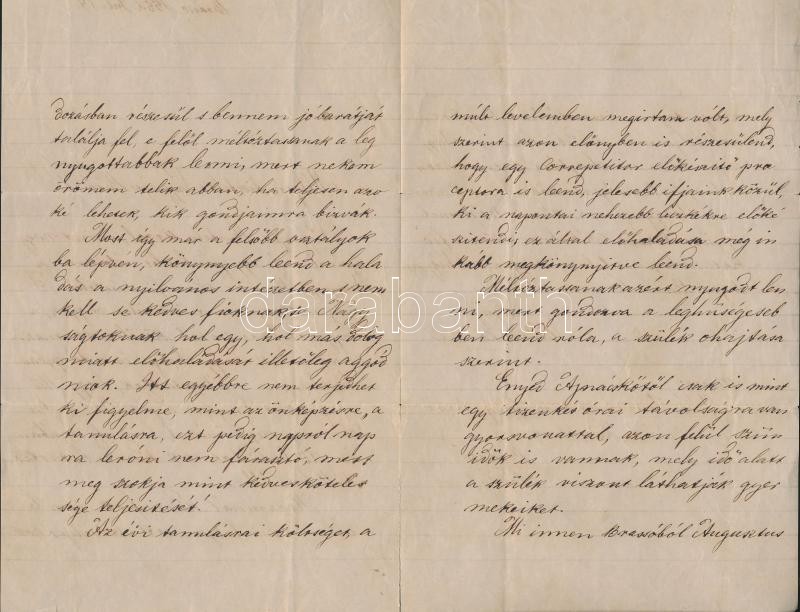 dozásban részesűl s bennem jó barátját
találja fel, e felől méltóztassanak a leg
nyugottabbak lenni, mert nekem
örömem telik abban, ha teljesen azo
ké lehetek, kik gondjaimra bizvák.
Most így már a felsőbb osztályok
ba lépven, könynyebb leend a hala
dás a nyilvános intézetben s nem
kell se kedves fioknak se Nagy
ságtoknak hol egy, hol más dolog
miatt előhaladását illetőleg aggód
niok. Itt egyébbre nem terjedhet
ki figyelme, mint az önképzésre, a
tanulásra, ezt pedig napról nap
ra leróni nem fárasztó, mert
meg szokja mint kedves köteles
sége teljesitését!
Az évi tanulásrai költséget, a
múlt levelemben megirtam vólt, mely
szerint azon előnyben is részesülend,
hogy egy Correpetitor előkészitő pro
ceptora is leend, jelesebb ifjaink közül,
ki a napontai nehezebb leczkékre előké
szitendi, ez által előhaladása még in
kább megkönynyitve leend.
Méltóztassanak azért nyugodt len
ni, mert gondozva a leghűségeseb
ben leend róla, a szülék ohajtása
szerint.
Enyed Apnáczkától csak is mint
egy tizenkét órai távolságra van
gyorsvonattal, azon felűl szün
idők is vannak, mely idő alatt
a szülék viszont láthatják gyer
mekeiket.
Mi innen Brassóból Augusztus
darabanth